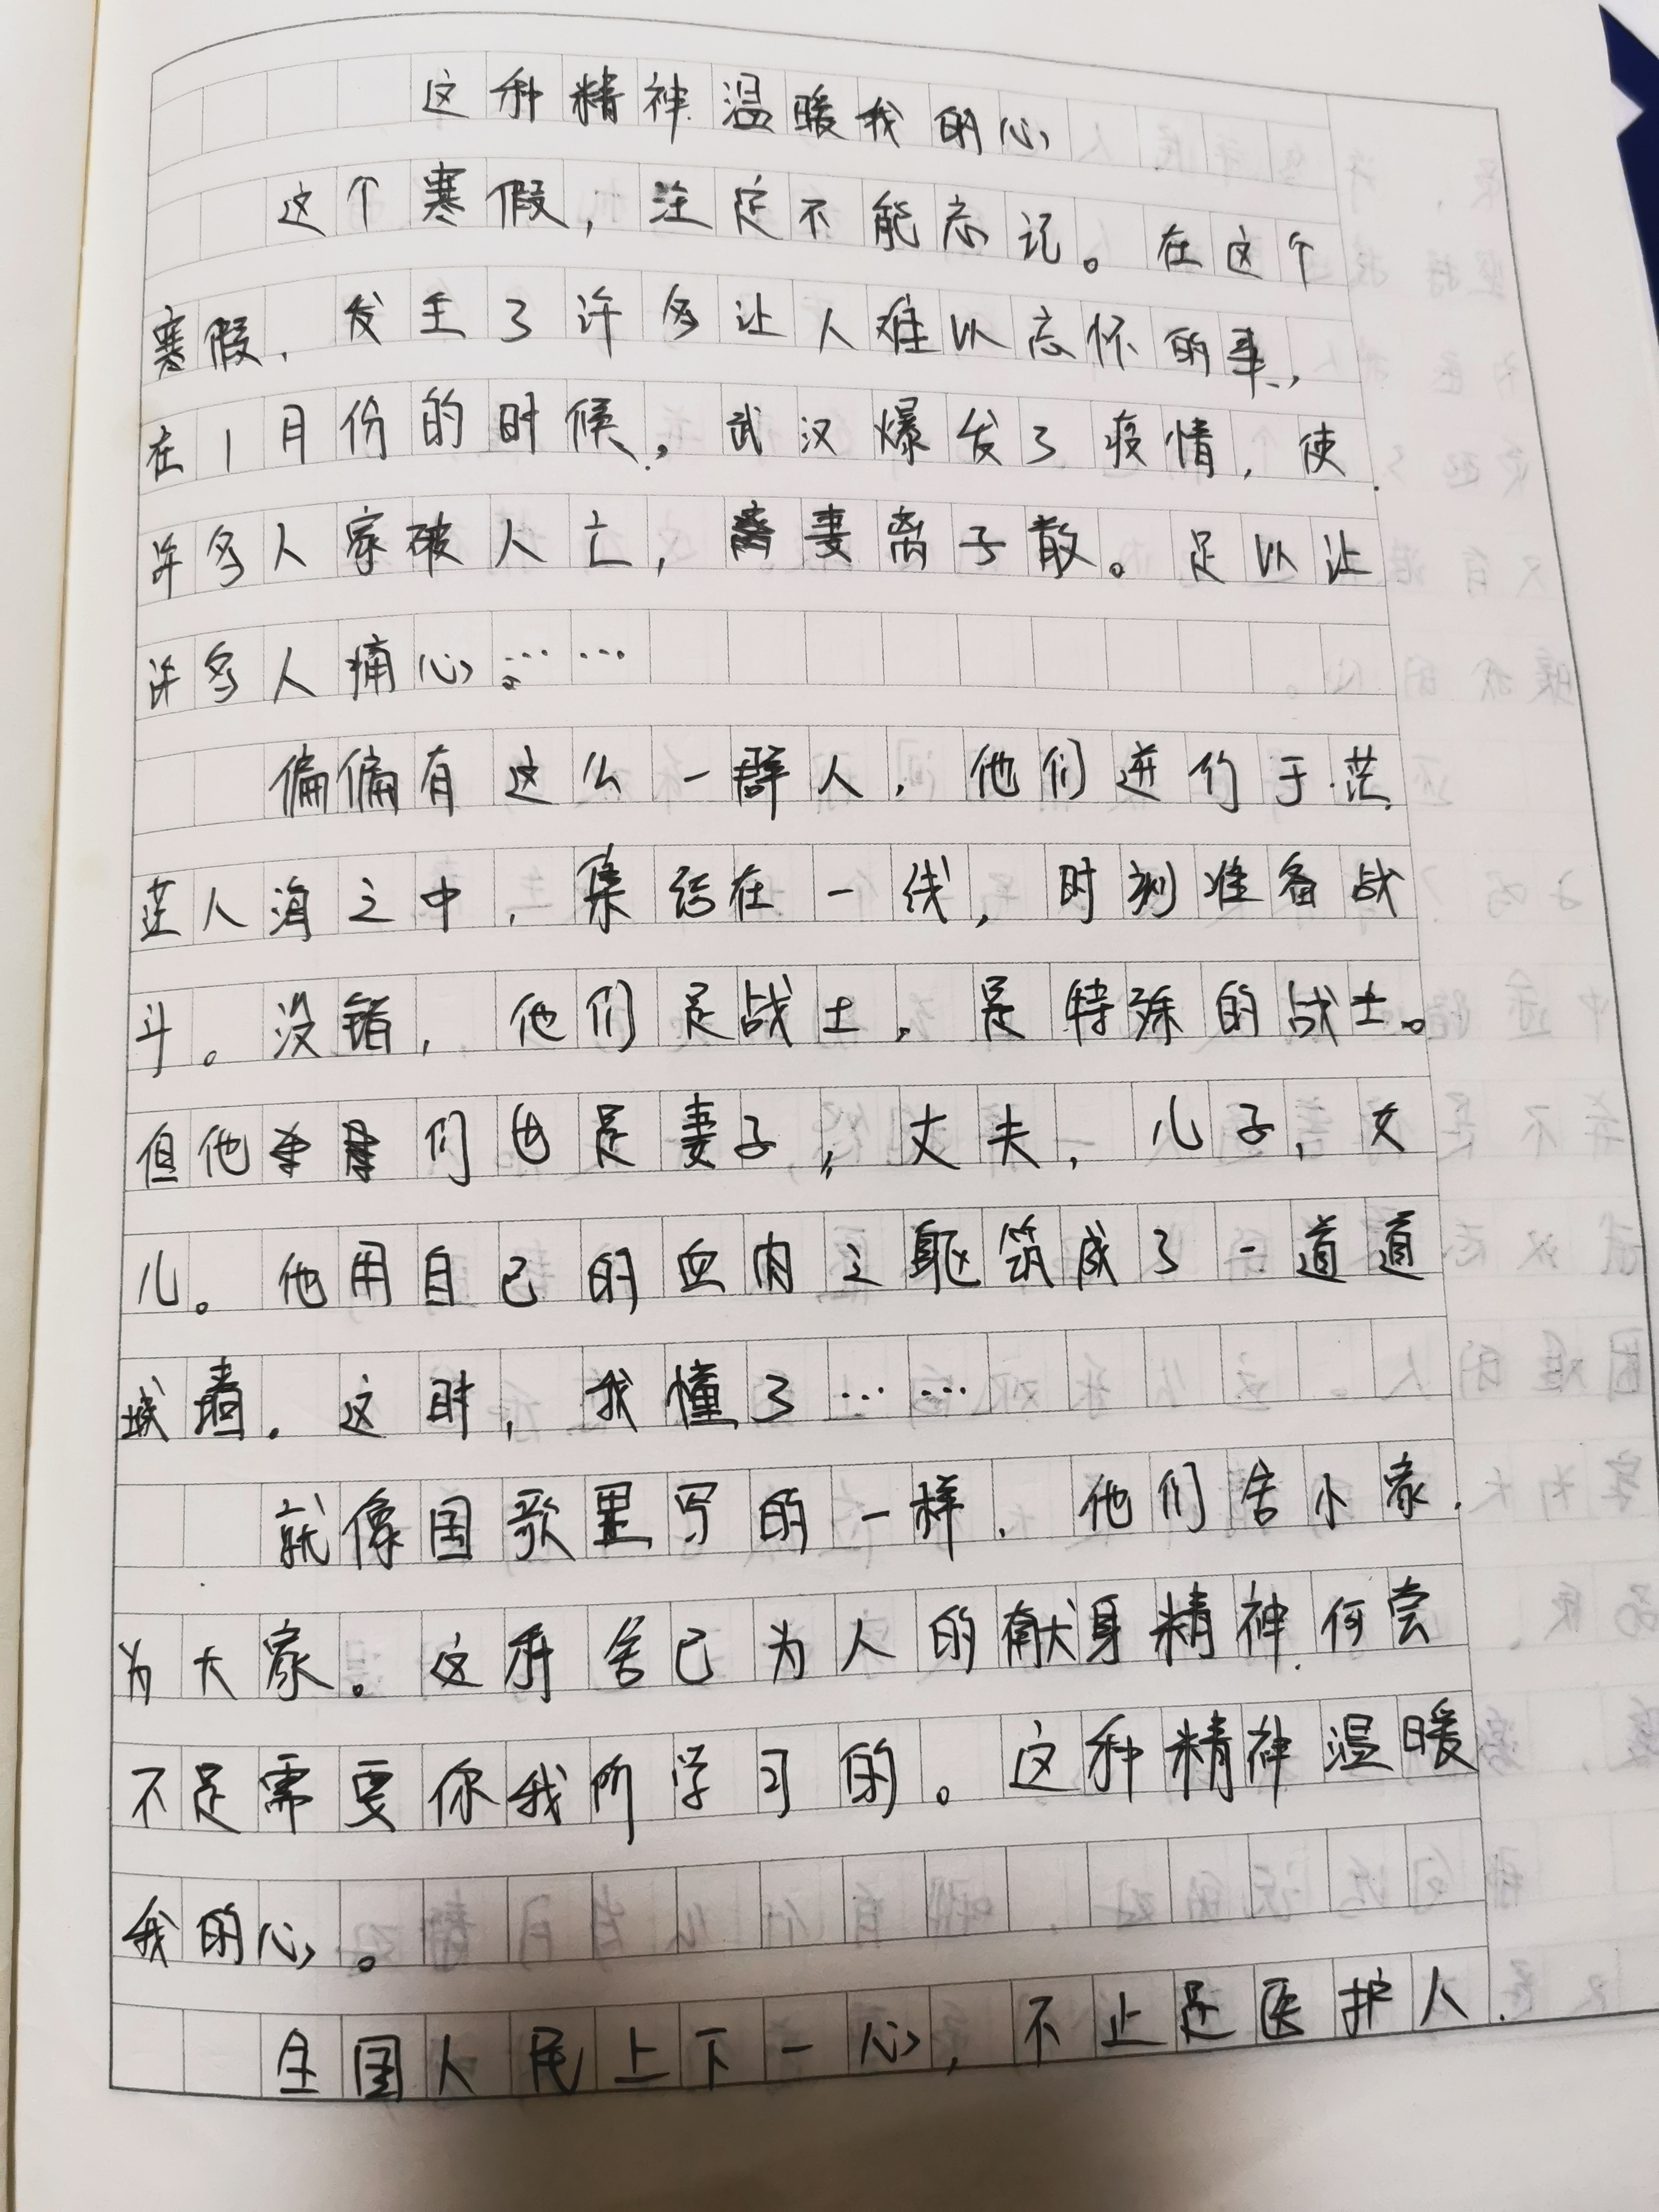 这种精神温暖我的心
这个寒假，注定不能忘记。在这个
寒假，发生了许多让人难以忘怀的事，
在1月份的时候，武汉爆发了疫情，使
许多人家破人亡，妻离子散。足以让
许多人痛心……
偏偏有这么一群人，他们逆行于茫
茫人海之中，集结在一线，时刻准备战
斗。没错，他们是战士，是特殊的战士。
但他们也是妻子，丈夫，儿子，女
儿。他用自己的血肉之躯筑成了一道道
城墙。这时，我懂了……
就像国歌里写的一样，他们舍小家，
为大家。这种舍己为人的献身精神，何尝
不是需要你我所学习的。这种精神温暖
我的心。
全国人民上下一心，不止是医护人